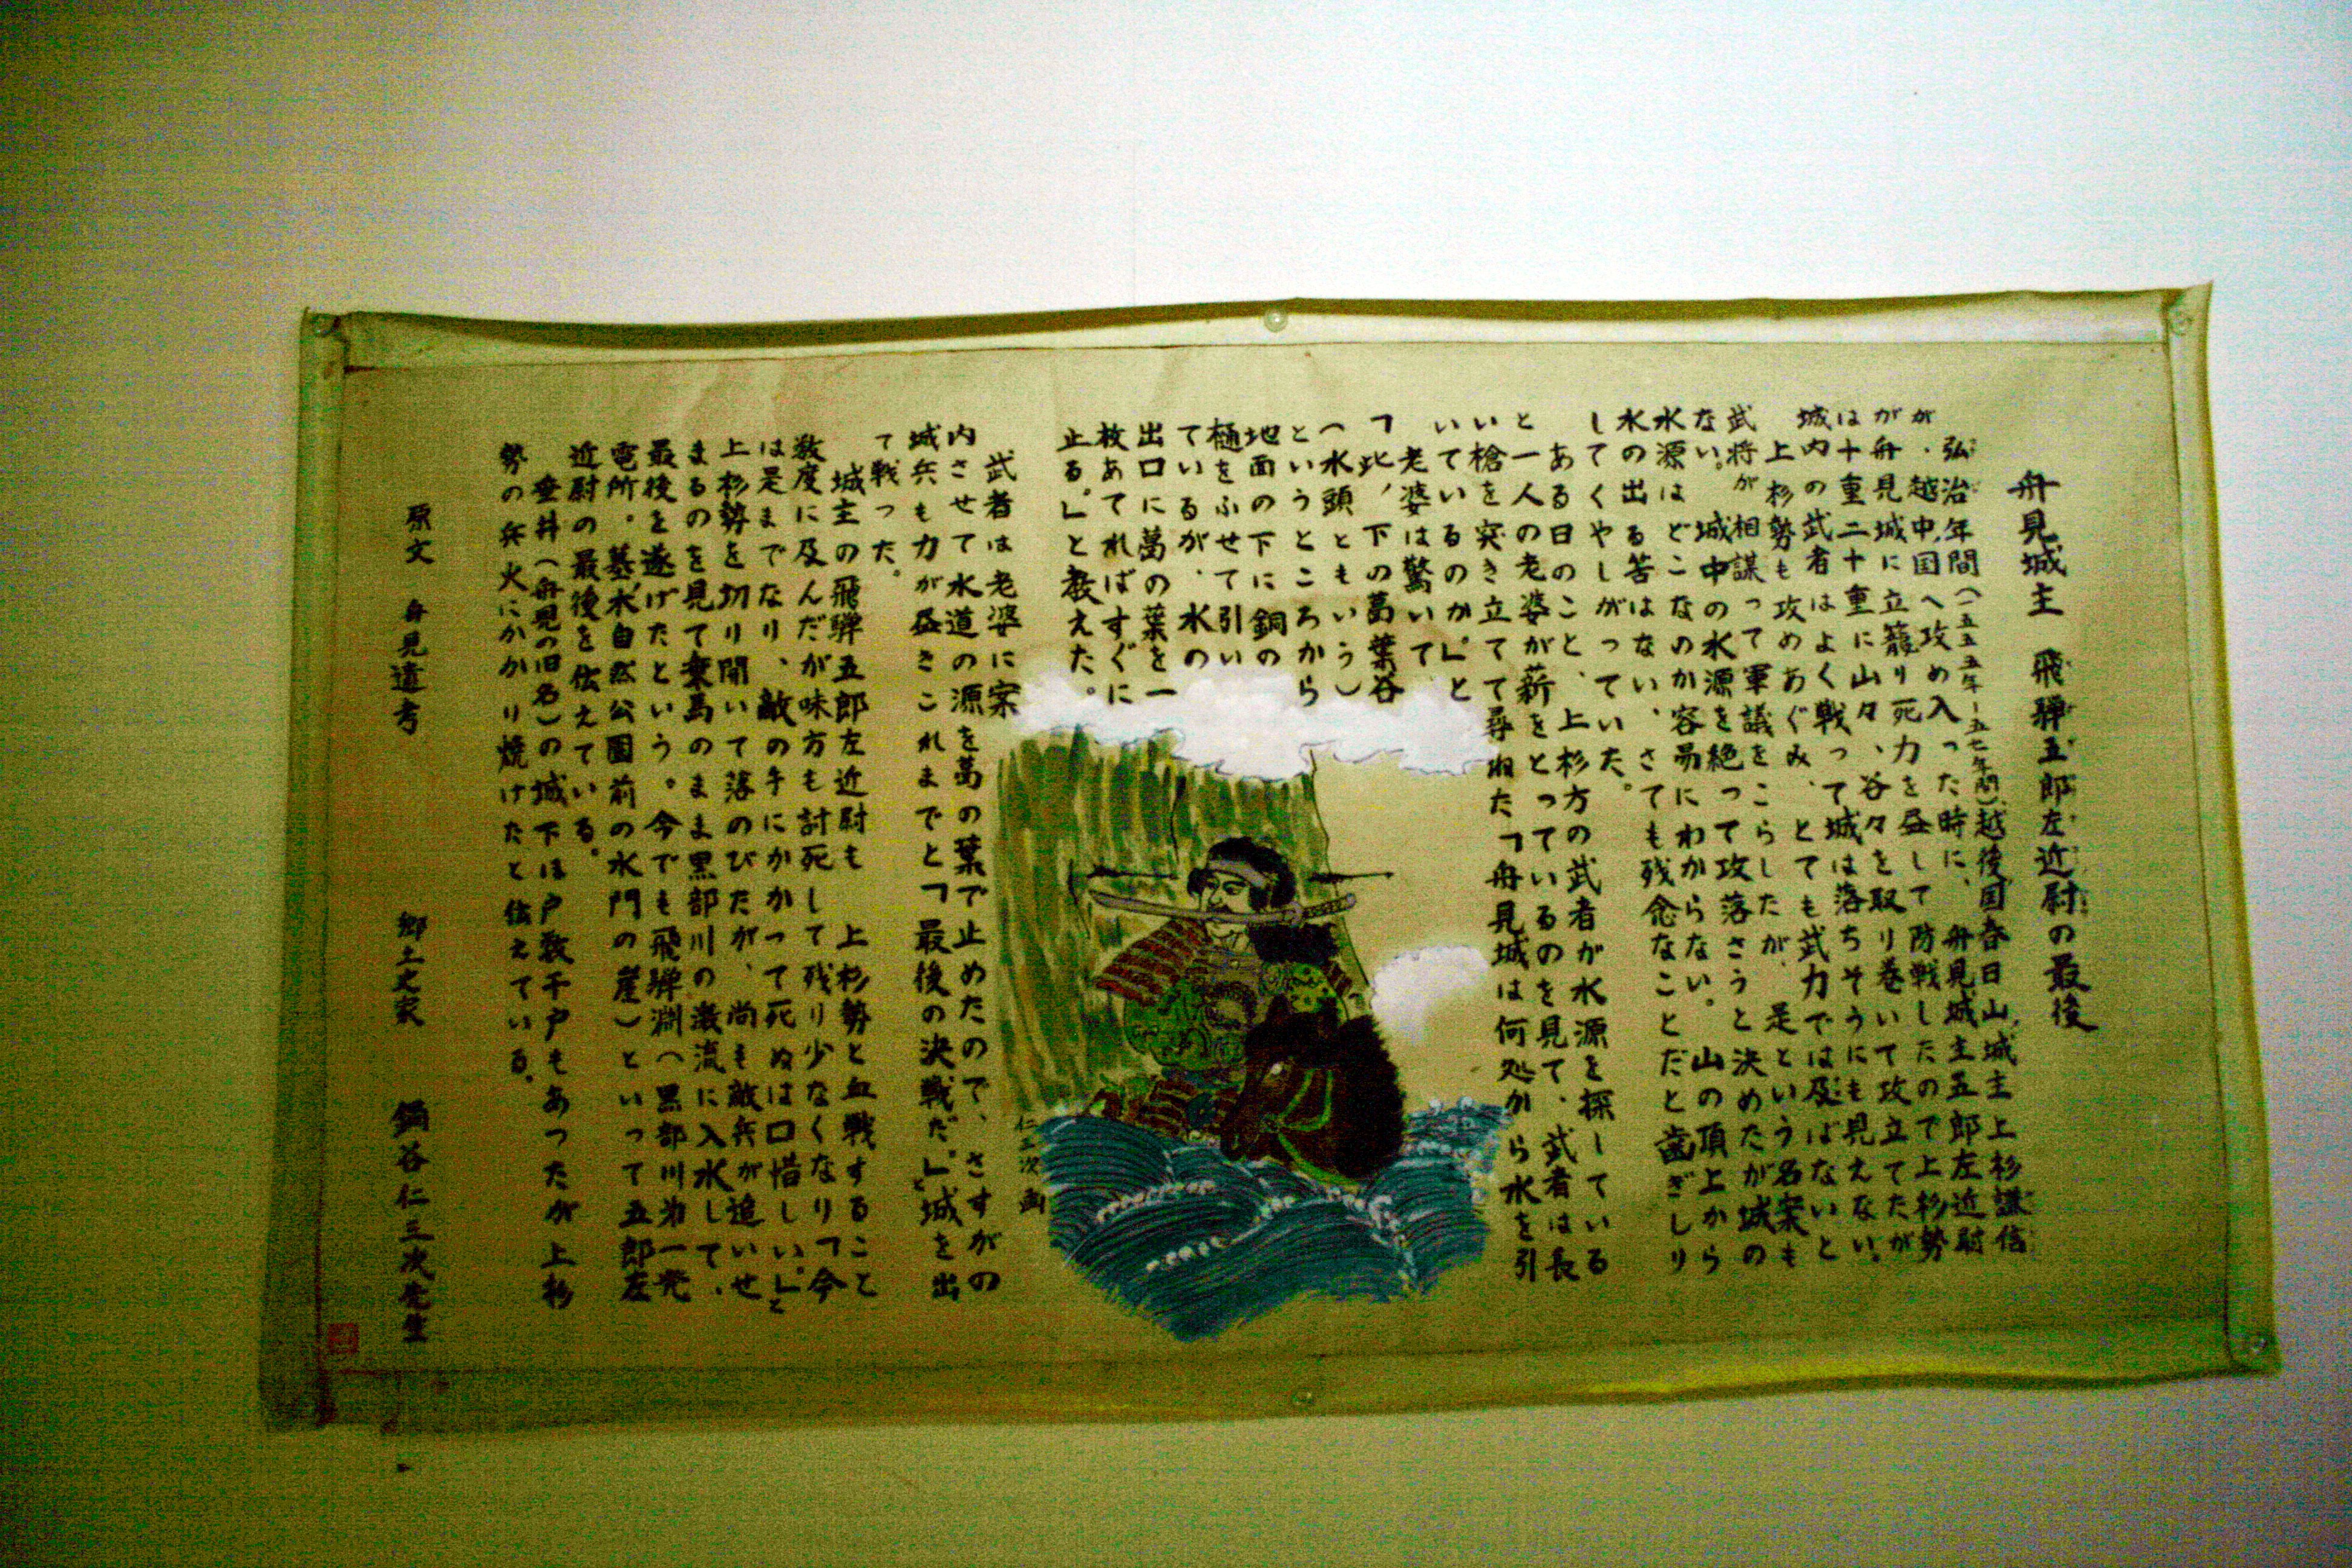 舟見城主 飛騨五郎左近尉の最後
弘治年間(一五五五年-五七年間)越後国春日山城主上杉謙信
が、越中国へ攻め入った時に、舟見城主五郎左近尉
が舟見城に立籠り死力を昼して防戦したので上杉勢
は十重二十重に山々、谷々を取り巻いて攻立てたが
城内の武者はよく戦って城は落ちそうにも見えない。
上杉勢も攻めあぐみ、とても武力では及ばないと
武将が相謀って軍議をこらしたが、是という名案も
ない。城中の水源を絶って攻落さうと決めたが城の
水源はどこなのか容易にわからない。山の頂上から
水の出る筈はない、さても残念なことだと歯ぎしり
してくやしがっていた。
ある日のこと、上杉方の武者が水源を探している
と一人の老婆が薪をとっているのを見て、武者は長
い槍を突き立てて尋ねた「舟見城は何処から水を引
いているのか。」と
老婆は驚いて、
「此ノ下の葛葉谷
(水頭ともいう)
というところから
地面の下に銅の
樋をふせて引い
ているが、水の
出口に葛の葉を一
枚あてればすぐに
止る。」と教えた。
武者は老婆に案
内させて水道の源を葛の葉で止めたので、さすがの
城兵も力が昼きこれまでと「最後の決戦だ。」と城を出
て戦った。
城主の飛騨五郎左近尉も上杉勢と血戦すること
数度に及んだが味方も討死して残り少なくなり「今
は是までなり、敵の手にかかって死ぬは口惜しい。」と
上杉勢を切り開いて落のびたが、尚も敵兵が追いせ
まるのを見て乗馬のまま黒部川の激流に入水して、
最後を遂げたという。今でも飛騨渕(黒部川第一発
電所。墓木自然公園前の水門の崖)といって五郎左
近尉の最後を伝えている。
壼井(舟見の旧名)の城下は戸数千戸もあったが上杉
勢の兵火にかかり焼けたと伝えている。
原文 舟見遺考 郷土史家 鍋谷仁三次先生
仁三次画